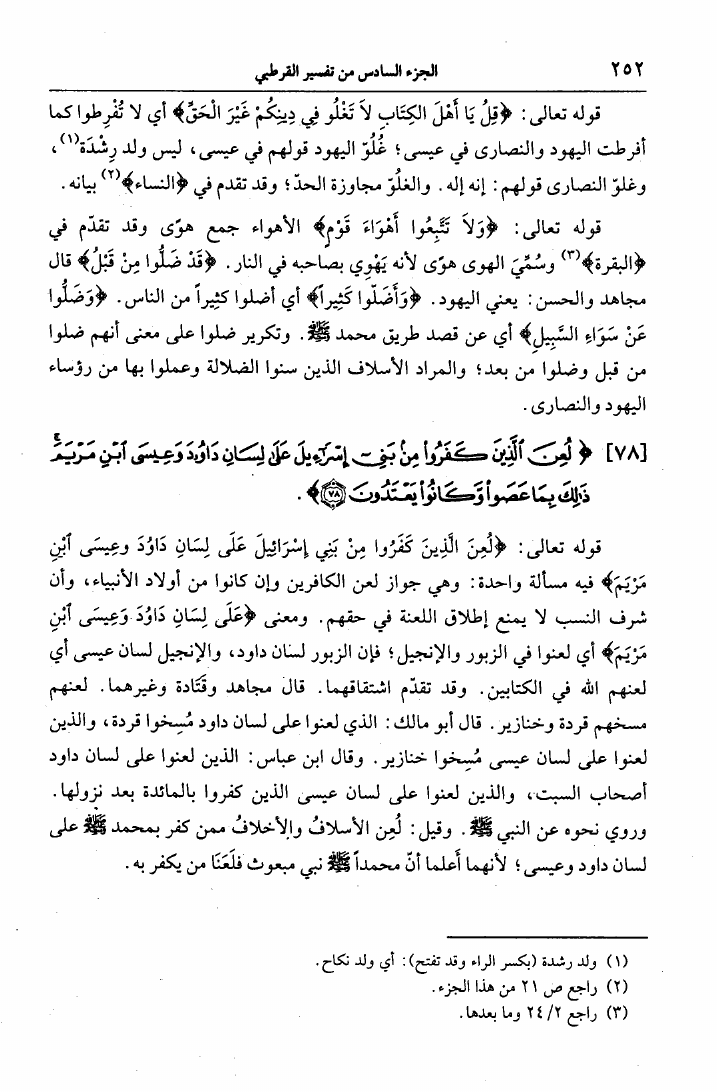 ٢٥٢ الجزء السادس من تفسير القرطبي
قوله تعالى: ﴿قِلُ يَا أَهْلَ الكِتَابِ لاَ تَغْلُو فِي دِينِكُمْ غَيْرَ الْحَقِّ﴾ أي لا تُفْرِطوا كما
أفرطت اليهود والنصارى في عيسى؛ غُلُوّ اليهود قولهم في عيسى، ليس ولد رِشْدَة(١)،
وغلوّ النصارى قولهم: إنه إله. والغلُوّ مجاوزة الحدّ؛ وقد تقدم في ﴿النساء﴾(٢) بيانه.
قوله تعالى: ﴿وَلاَ تَتَّبِعُوا أَهْوَاءَ قَوْمٍ﴾ الأهواء جمع هوًى وقد تقدّم في
﴿البقرة﴾(٣) وسُمِّيَ الهوى هوًى لأنه يَهْوِي بصاحبه في النار. ﴿قَدْ ضَلُّوا مِنْ قَبْلُ﴾ قال
مجاهد والحسن: يعني اليهود. ﴿وَأَضَلّوا كَثِيراً﴾ أي أضلوا كثيراً من الناس. ﴿وَضَلُّوا
عَنْ سَوَاءِ السَّبِيلِ﴾ أي عن قصد طريق محمد ﷺ. وتكرير ضلوا على معنى أنهم ضلوا
من قبل وضلوا من بعد؛ والمراد الأسلاف الذين سنوا الضلالة وعملوا بها من رؤساء
اليهود والنصارى.
[٧٨] ﴿ لُعِنَ ٱلَّذِينَ كَفَرُوا۟ مِنۢ بَنِىٓ إِسْرَٰٓءِيلَ عَلَىٰ لِسَانِ دَاوُۥدَ وَعِيسَى ٱبْنِ مَرْيَمَ ۚ
ذَٰلِكَ بِمَا عَصَوا۟ وَّكَانُوا۟ يَعْتَدُونَ ﴿٧٨﴾ ﴾.
قوله تعالى: ﴿لُعِنَ الَّذِينَ كَفَرُوا مِنْ بَنِي إِسْرَائِيلَ عَلَى لِسَانِ دَاوُدَ وعِيسَى ٱبْنِ
مَرْيَمَ﴾ فيه مسألة واحدة: وهي جواز لعن الكافرين وإن كانوا من أولاد الأنبياء، وأن
شرف النسب لا يمنع إطلاق اللعنة في حقهم. ومعنى ﴿عَلَى لِسَانِ دَاوُدَ وَعِيسَى ٱبْنِ
مَرْيَمَ﴾ أي لعنوا في الزبور والإنجيل؛ فإن الزبور لسان داود، والإنجيل لسان عيسى أي
لعنهم الله في الكتابين. وقد تقدّم اشتقاقهما. قال مجاهد وقَتَادة وغيرهما. لعنهم
مسخهم قردة وخنازير. قال أبو مالك: الذي لعنوا على لسان داود مُسِخوا قردة، والذين
لعنوا على لسان عيسى مُسِخوا خنازير. وقال ابن عباس: الذين لعنوا على لسان داود
أصحاب السبت، والذين لعنوا على لسان عيسى الذين كفروا بالمائدة بعد نزولها.
وروي نحوه عن النبي ﷺ. وقيل: لُعِن الأسلافُ والأخلافُ ممن كفر بمحمد ﷺ على
لسان داود وعيسى؛ لأنهما أَعلما أنّ محمداً ﷺ نبي مبعوث فلَعَنَا من يكفر به.
(١) ولد رشدة (بكسر الراء وقد تفتح): أي ولد نكاح.
(٢) راجع ص ٢١ من هذا الجزء.
(٣) راجع ٢٤/٢ وما بعدها.